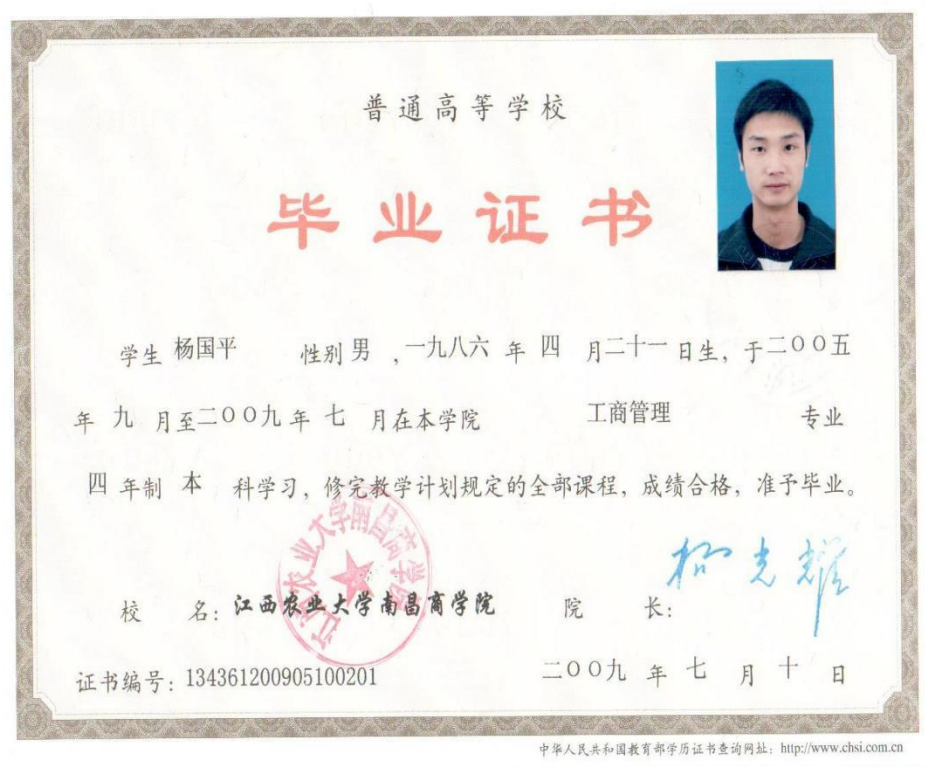 普通高等学校
毕业证书
学生 杨国平 性别 男 ,一九八六 年 四 月二十一 日生，于二〇〇五
年 九 月至二〇〇九 年 七 月在本学院 工商管理 专业
四 年制 本 科学习，修完教学计划规定的全部课程，成绩合格，准予毕业。
江西农业大学南昌商学院
校 名：江西农业大学南昌商学院 院 长：
证书编号：134361200905100201 二〇〇九 年 七 月 十 日
中华人民共和国教育部学历证书查询网址：http://www.chsi.com.cn